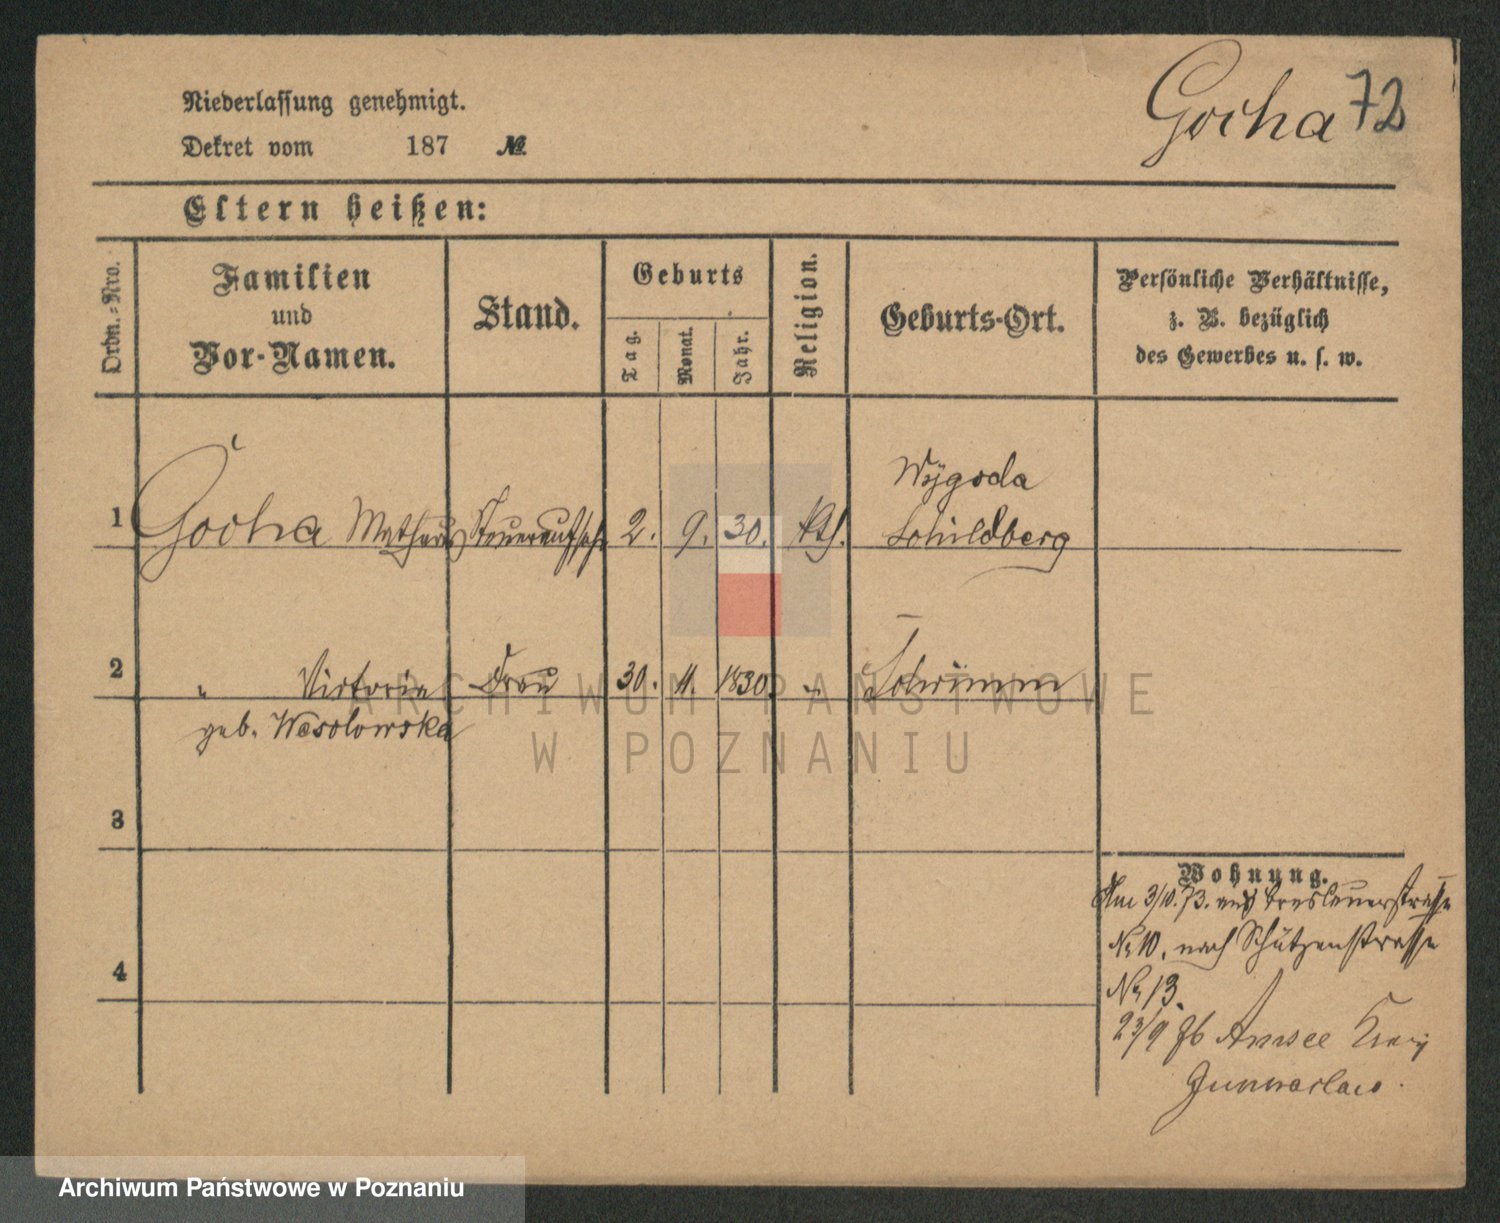 Gocha 72
Niederlassung genehmigt.
Dekret vom 187 №
Eltern heißen:
Ordn.-Nro.
Familien
und
Vor-Namen.
Stand.
Geburts
Tag.
Monat.
Jahr.
Religion.
Geburts-Ort.
Persönliche Verhältnisse,
z. B. bezüglich
des Gewerbes u. s. w.
Wygoda
1 Gocha Matheus Steueraufseh 2. 9. 30. kth. Schildberg
2 " Victoria Frau 30. 11. 1830. " Schrimm
geb. Wesolowska
3
4
Wohnung.
Am 3/10. 73. aus Breslauerstrasse
No 10. nach Schützenstrasse
No 13.
23/9 76 Amsee Kreis
Inowraclaw.
ARCHIWUM PAŃSTWOWE
W POZNANIU
Archiwum Państwowe w Poznaniu